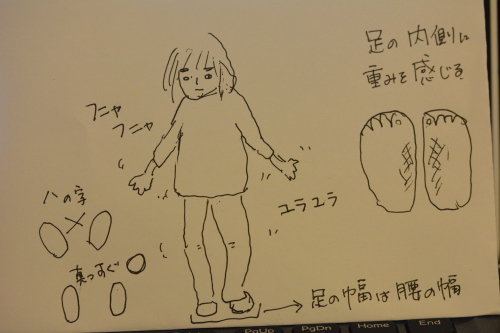 足の内側に
重みを感じる
フニャ
フニャ
ユラユラ
ハの字
真っすぐ
足の幅は腰の幅
PgUp
PgDn
Home
End